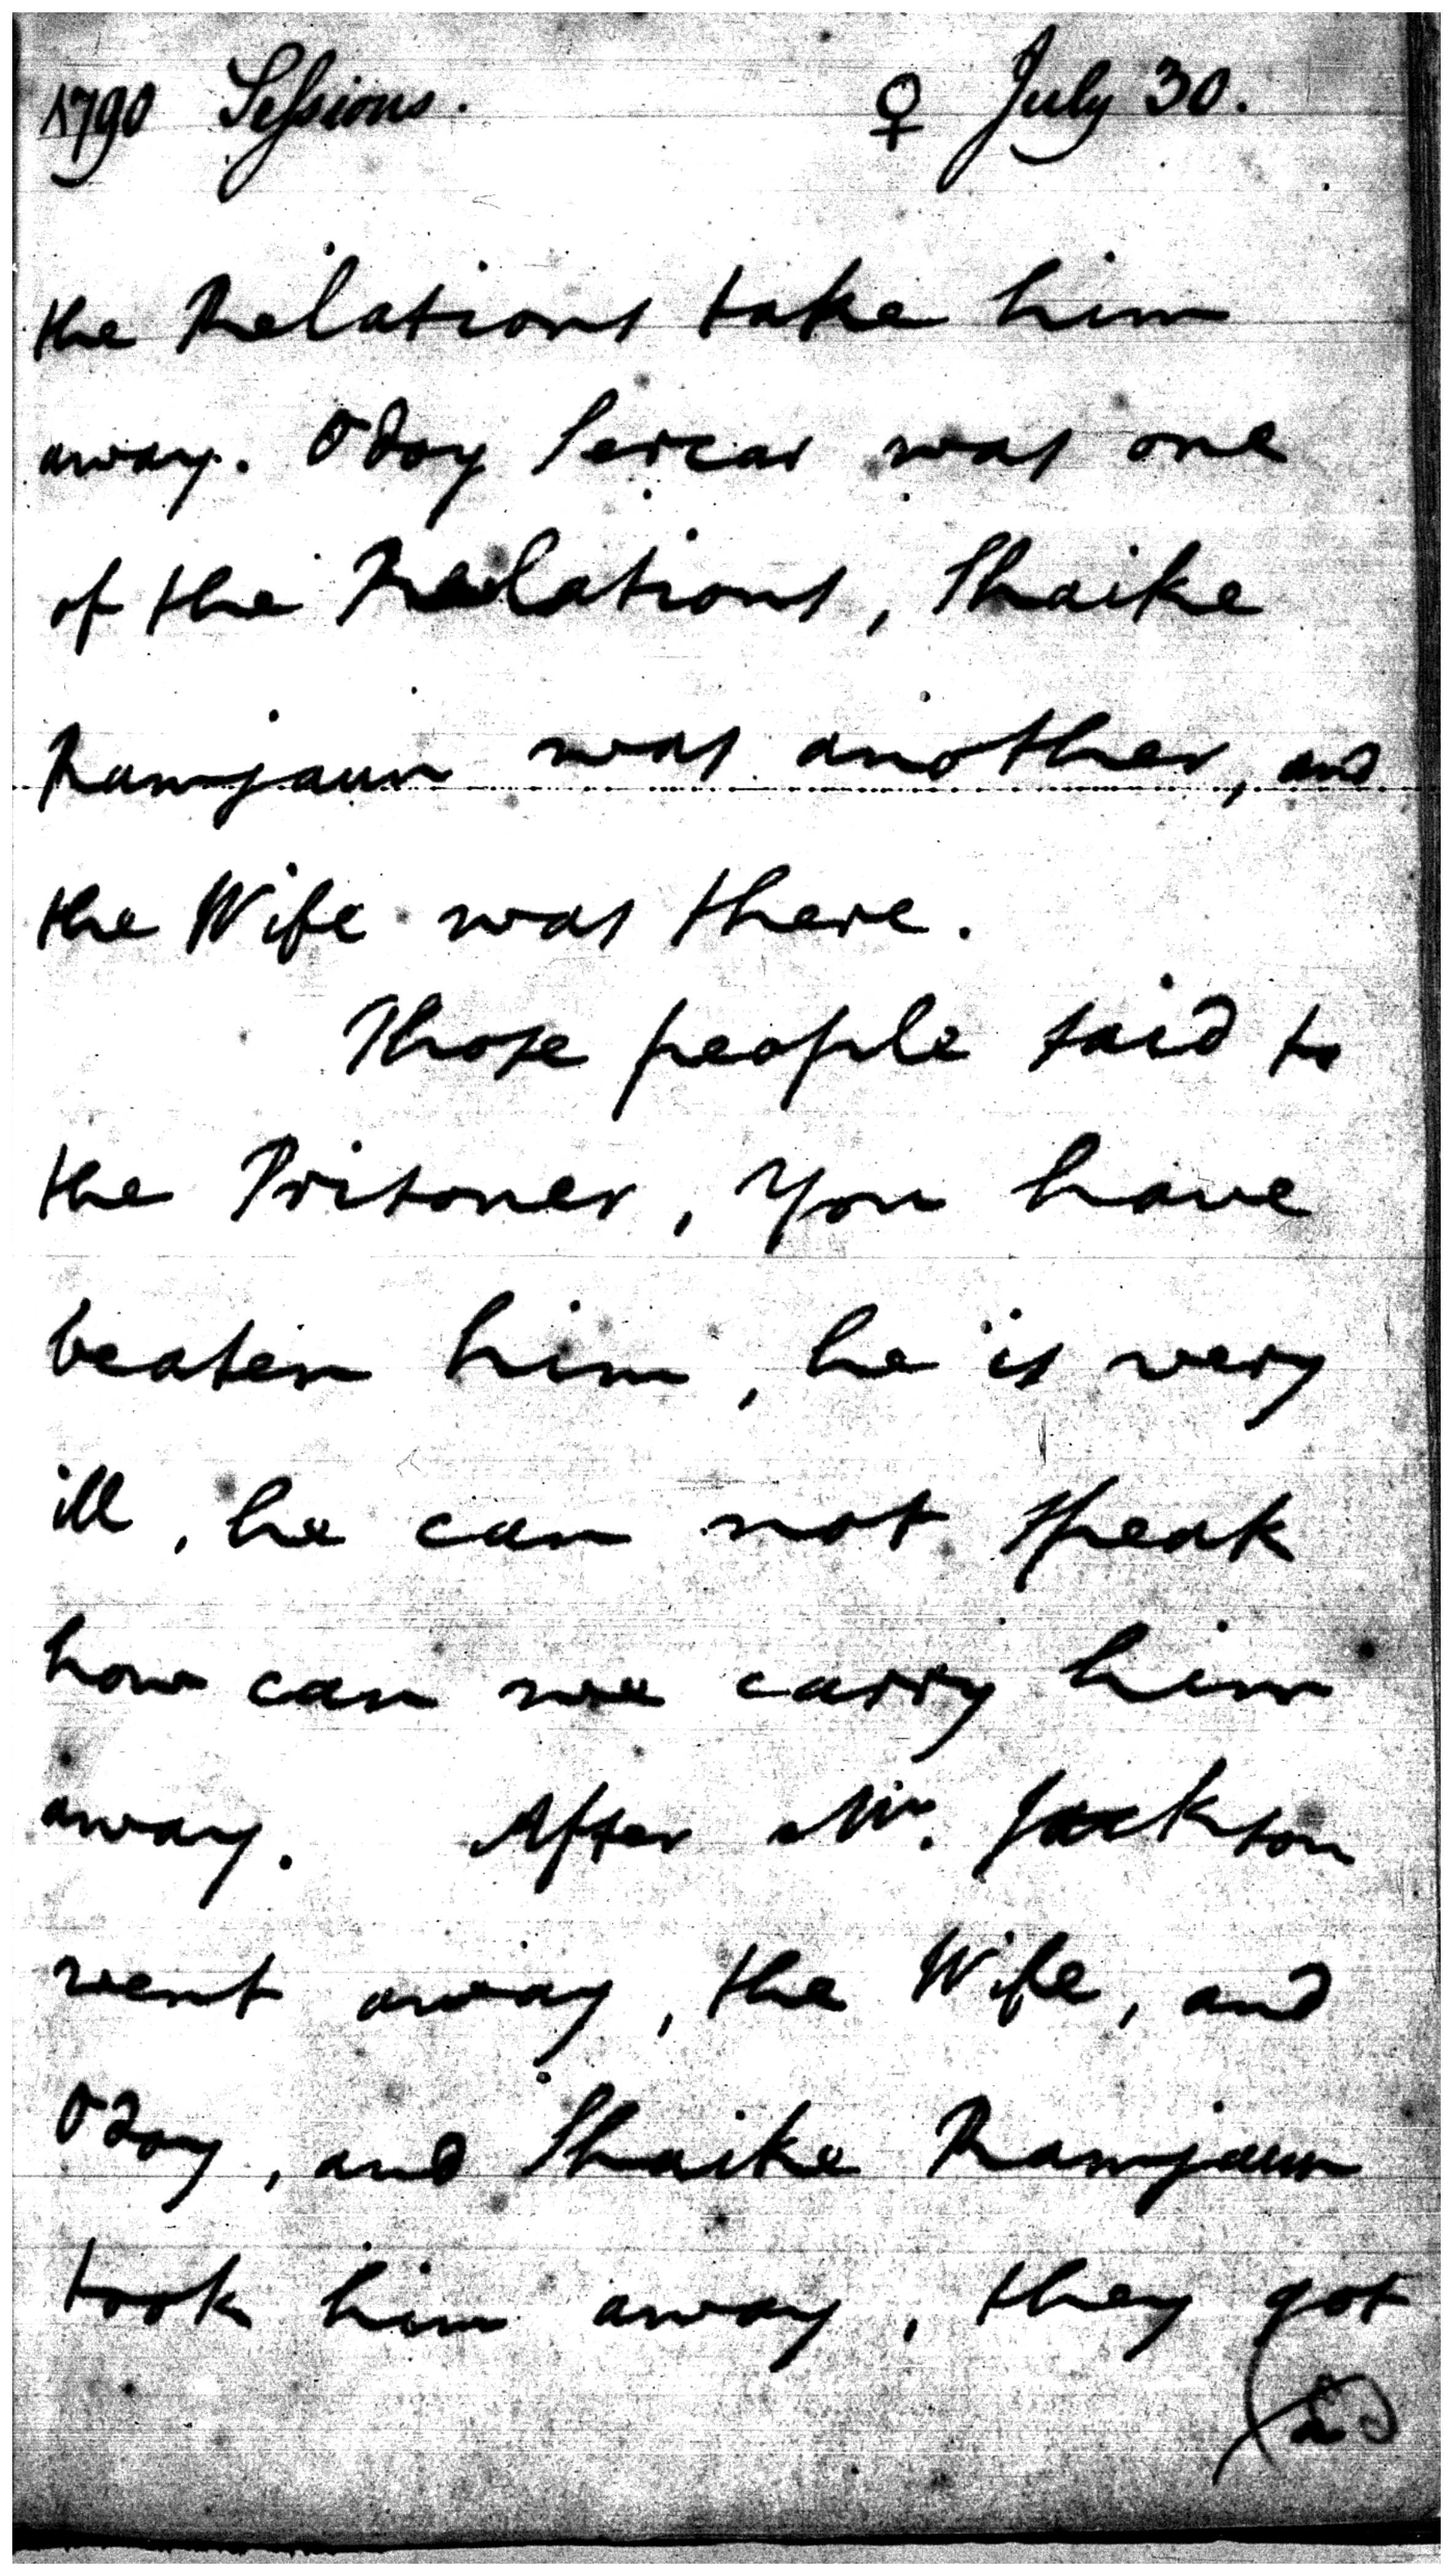 1790 Sessions. ♀ July 30.
the Relations take him
away. Odoy Sercar was one
of the Relations, Shaike
Ramjaun was another, and
the Wife was there.
Those people said to
the Prisoner, You have
beaten him, he is very
ill, he can not speak
how can we carry him
away. After Mr. Jackson
went away, the Wife, and
Odoy, and Shaike Ramjaun
took him away, they got